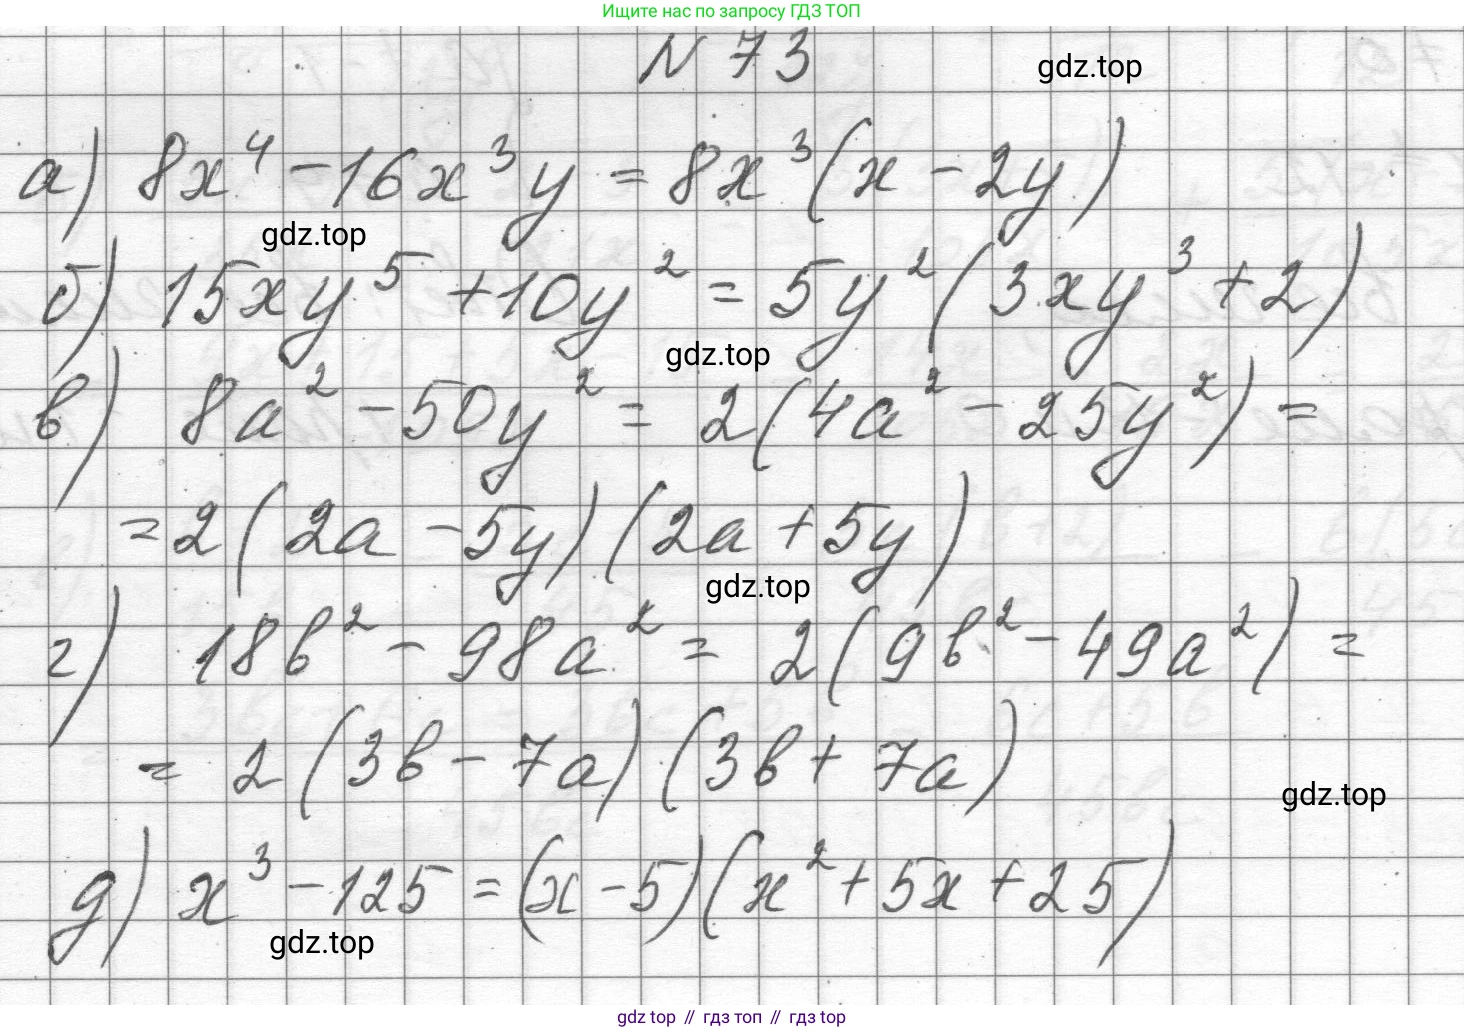 Ищите нас по запросу ГДЗ ТОП
N 73
gdz.top
а) 8x⁴ - 16x³y = 8x³(x - 2y)
gdz.top
б) 15xy⁵ + 10y² = 5y²(3xy³ + 2)
gdz.top
в) 8a² - 50y² = 2(4a² - 25y²) =
= 2(2a - 5y)(2a + 5y)
gdz.top
г) 18b² - 98a² = 2(9b² - 49a²) =
= 2(3b - 7a)(3b + 7a)
gdz.top
д) x³ - 125 = (x - 5)(x² + 5x + 25)
gdz.top
gdz top // гдз топ // gdz top